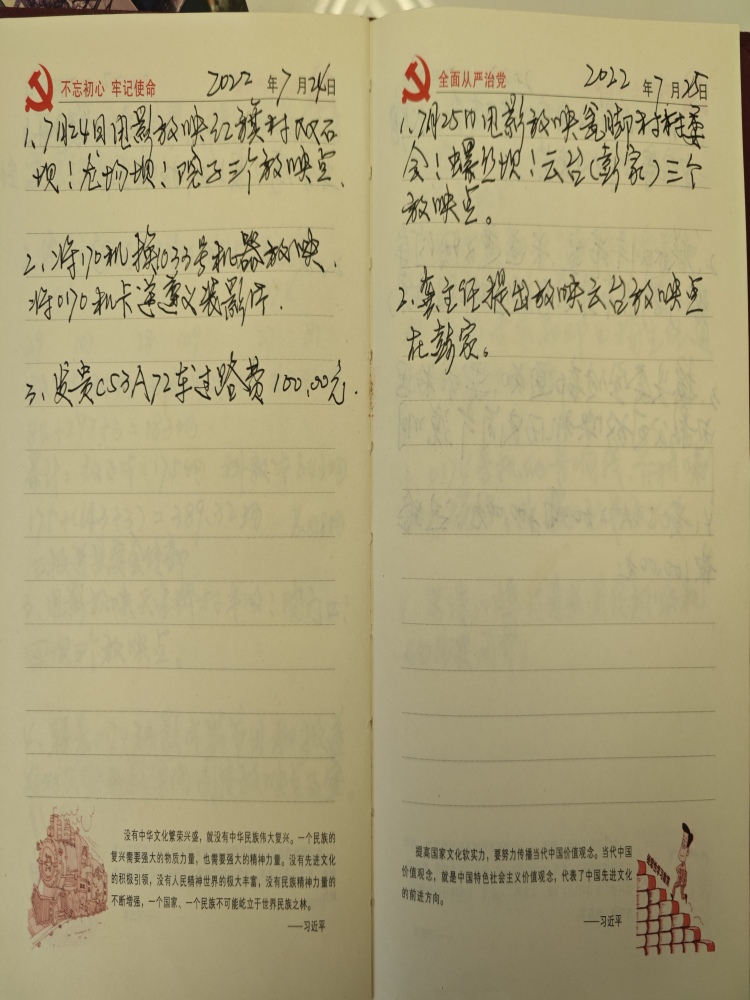 不忘初心 牢记使命
2022 年 7 月 24 日
1、7月24日电影放映红旗村双石
坝！龙场坝！院子三个放映点.
2、将170机换1033号机器放映.
将0170机卡送遵义装影片.
3、发贵C53A72车过路费100.00元.
没有中华文化繁荣兴盛，就没有中华民族伟大复兴。一个民族的
复兴需要强大的物质力量，也需要强大的精神力量。没有先进文化
的积极引领，没有人民精神世界的极大丰富，没有民族精神力量的
不断增强，一个国家、一个民族不可能屹立于世界民族之林。
——习近平
全面从严治党
2022 年 7 月 25 日
1.7月25日电影放映瓮脚村村委
会！螺丝坝！云台(彭家)三个
放映点。
2.主任提出放映云台放映点
在彭家。
提高国家文化软实力，要努力传播当代中国价值观念。当代中国
价值观念，就是中国特色社会主义价值观念，代表了中国先进文化
的前进方向。
——习近平